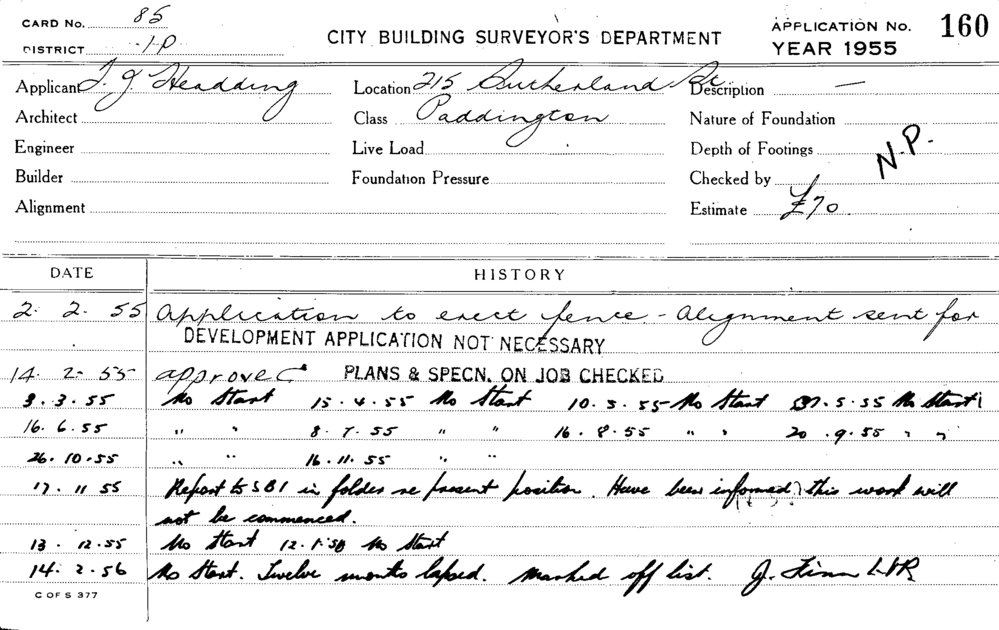 CARD No. 85
DISTRICT 1-D
CITY BUILDING SURVEYOR'S DEPARTMENT
APPLICATION No. 160
YEAR 1955
Applicant T. J. Headding
Location 215 Sutherland St.
Description —
Architect
Class Paddington
Nature of Foundation
Engineer
Live Load
Depth of Footings
N.P.
Builder
Foundation Pressure
Checked by
Alignment
Estimate £70
DATE HISTORY
2. 2. 55 Application to erect fence - Alignment sent for
DEVELOPMENT APPLICATION NOT NECESSARY
14. 2. 55 approved PLANS & SPECN. ON JOB CHECKED
3. 3. 55 No Start 15. 4. 55 No Start 10. 5. 55 No Start 5. 55 No Start
16. 6. 55 " " 8. 7. 55 " " 16. 8. 55 " " 20. 9. 55 " "
26. 10. 55 " " 16. 11. 55 " "
17. 11 55 Report to SBI in folder re present position. Have been informed this work will
not be commenced.
13. 12. 55 No Start 12. 1. No Start
14. 2. 56 No Start. Twelve months lapsed. Marked off list. J. Finn
C OF S 377